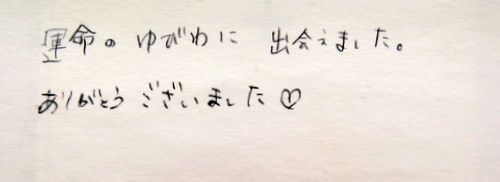 運命の ゆびわに 出会えました。
ありがとう ございました♡